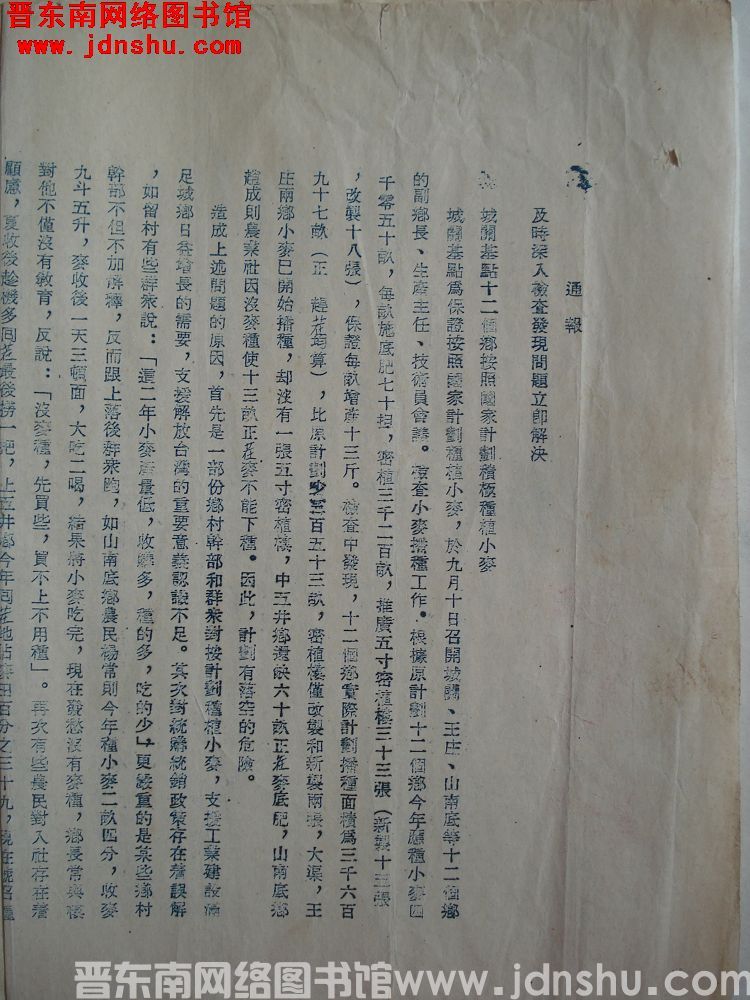 晋东南网络图书馆
www.jdnshu.com
通報
及時深入檢查發現問題立即解決
城關基點十二個鄉按照國家計劃積極種植小麥
城關基點爲保證按照國家計劃種植小麥，於九月十日召開城關、王庄、山南底等十二個鄉
的副鄉長、生產主任、技術員會議。檢查小麥播種工作。根據原計劃十二個鄉今年應種小麥四
千零五十畝，每畝施底肥七十担，密植三千二百畝，推廣五寸密植耬三十三張（新製十五張
，改製十八張），保證每畝增產十三斤。檢查中發現，十二個鄉實際計劃播種面積爲三千六百
九十七畝（正 趕茬均算），比原計劃少三百五十三畝，密植耬僅改製和新製兩張，大渠，王
庄兩鄉小麥已開始播種，却沒有一張五寸密植耬，中五井鄉還缺六十畝正茬麥底肥，山南底鄉
趙成則農業社因沒麥種使十三畝正茬麥不能下種。因此，計劃有落空的危險。
造成上述問題的原因，首先是一部份鄉村幹部和群衆對按計劃種植小麥，支援工業建設滿
足城鄉日益增長的需要，支援解放台灣的重要意義認識不足。其次對統購統銷政策存在着誤解
，如留村有些群衆說：「這二年小麥產量低，收購多，種的多，吃的少」，更嚴重的是某些鄉村
幹部不但不加解釋，反而跟上落後群衆跑，如山南底鄉農民楊常則今年種小麥二畝四分，收麥
九斗五升，麥收後一天三頓面，大吃二喝，結果將小麥吃完，現在發愁沒有麥種，鄉長常與模
對他不僅沒有敎育，反說：「沒麥種，先買些，買不上不用種」。再次有些農民對入社存在着
顧慮，夏收後趁機多囘茬最後撈一把，上五井鄉今年囘茬地佔麥田百分之三十九，現在號召種
晋东南网络图书馆www.jdnshu.com